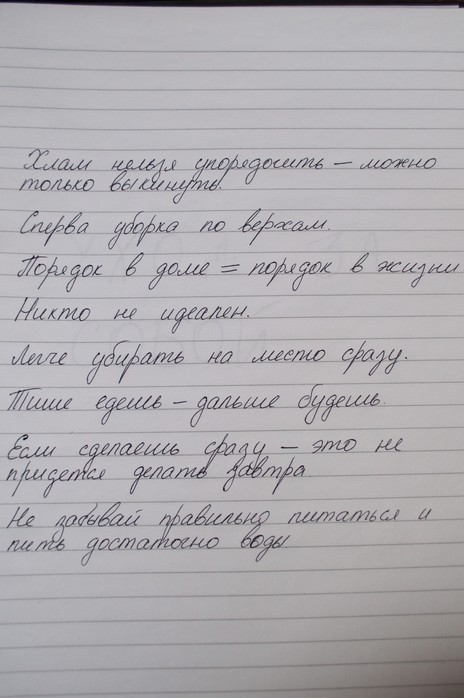 Хлам нельзя упорядочить – можно
только выкинуть.
Сперва уборка по верхам.
Порядок в доме = порядок в жизни
Никто не идеален.
Легче убирать на место сразу.
Тише едешь – дальше будешь.
Если сделаешь сразу – это не
придется делать завтра.
Не забывай правильно питаться и
пить достаточно воды.